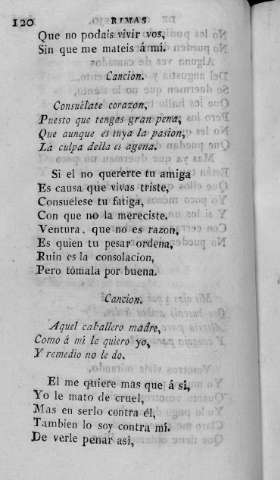 120 RIMAS
Que no podais vivir vos,
Sin que me mateis á mi.
Cancion.
Consuélate corazon,
Puesto que tengas gran pena,
Que aunque es tuya la pasion,
La culpa della es agena.
Si el no quererte tu amiga
Es causa que vivas triste,
Consuélese tu fatiga,
Con que no la mereciste.
Ventura, que no es razon,
Es quien tu pesar ordena,
Ruin es la consolacion,
Pero tómala por buena.
Cancion.
Aquel caballero madre,
Como á mi le quiero yo,
Y remedio no le do.
El me quiere mas que á si,
Yo le mato de cruel,
Mas en serlo contra él,
Tambien lo soy contra mi.
De verle penar asi,